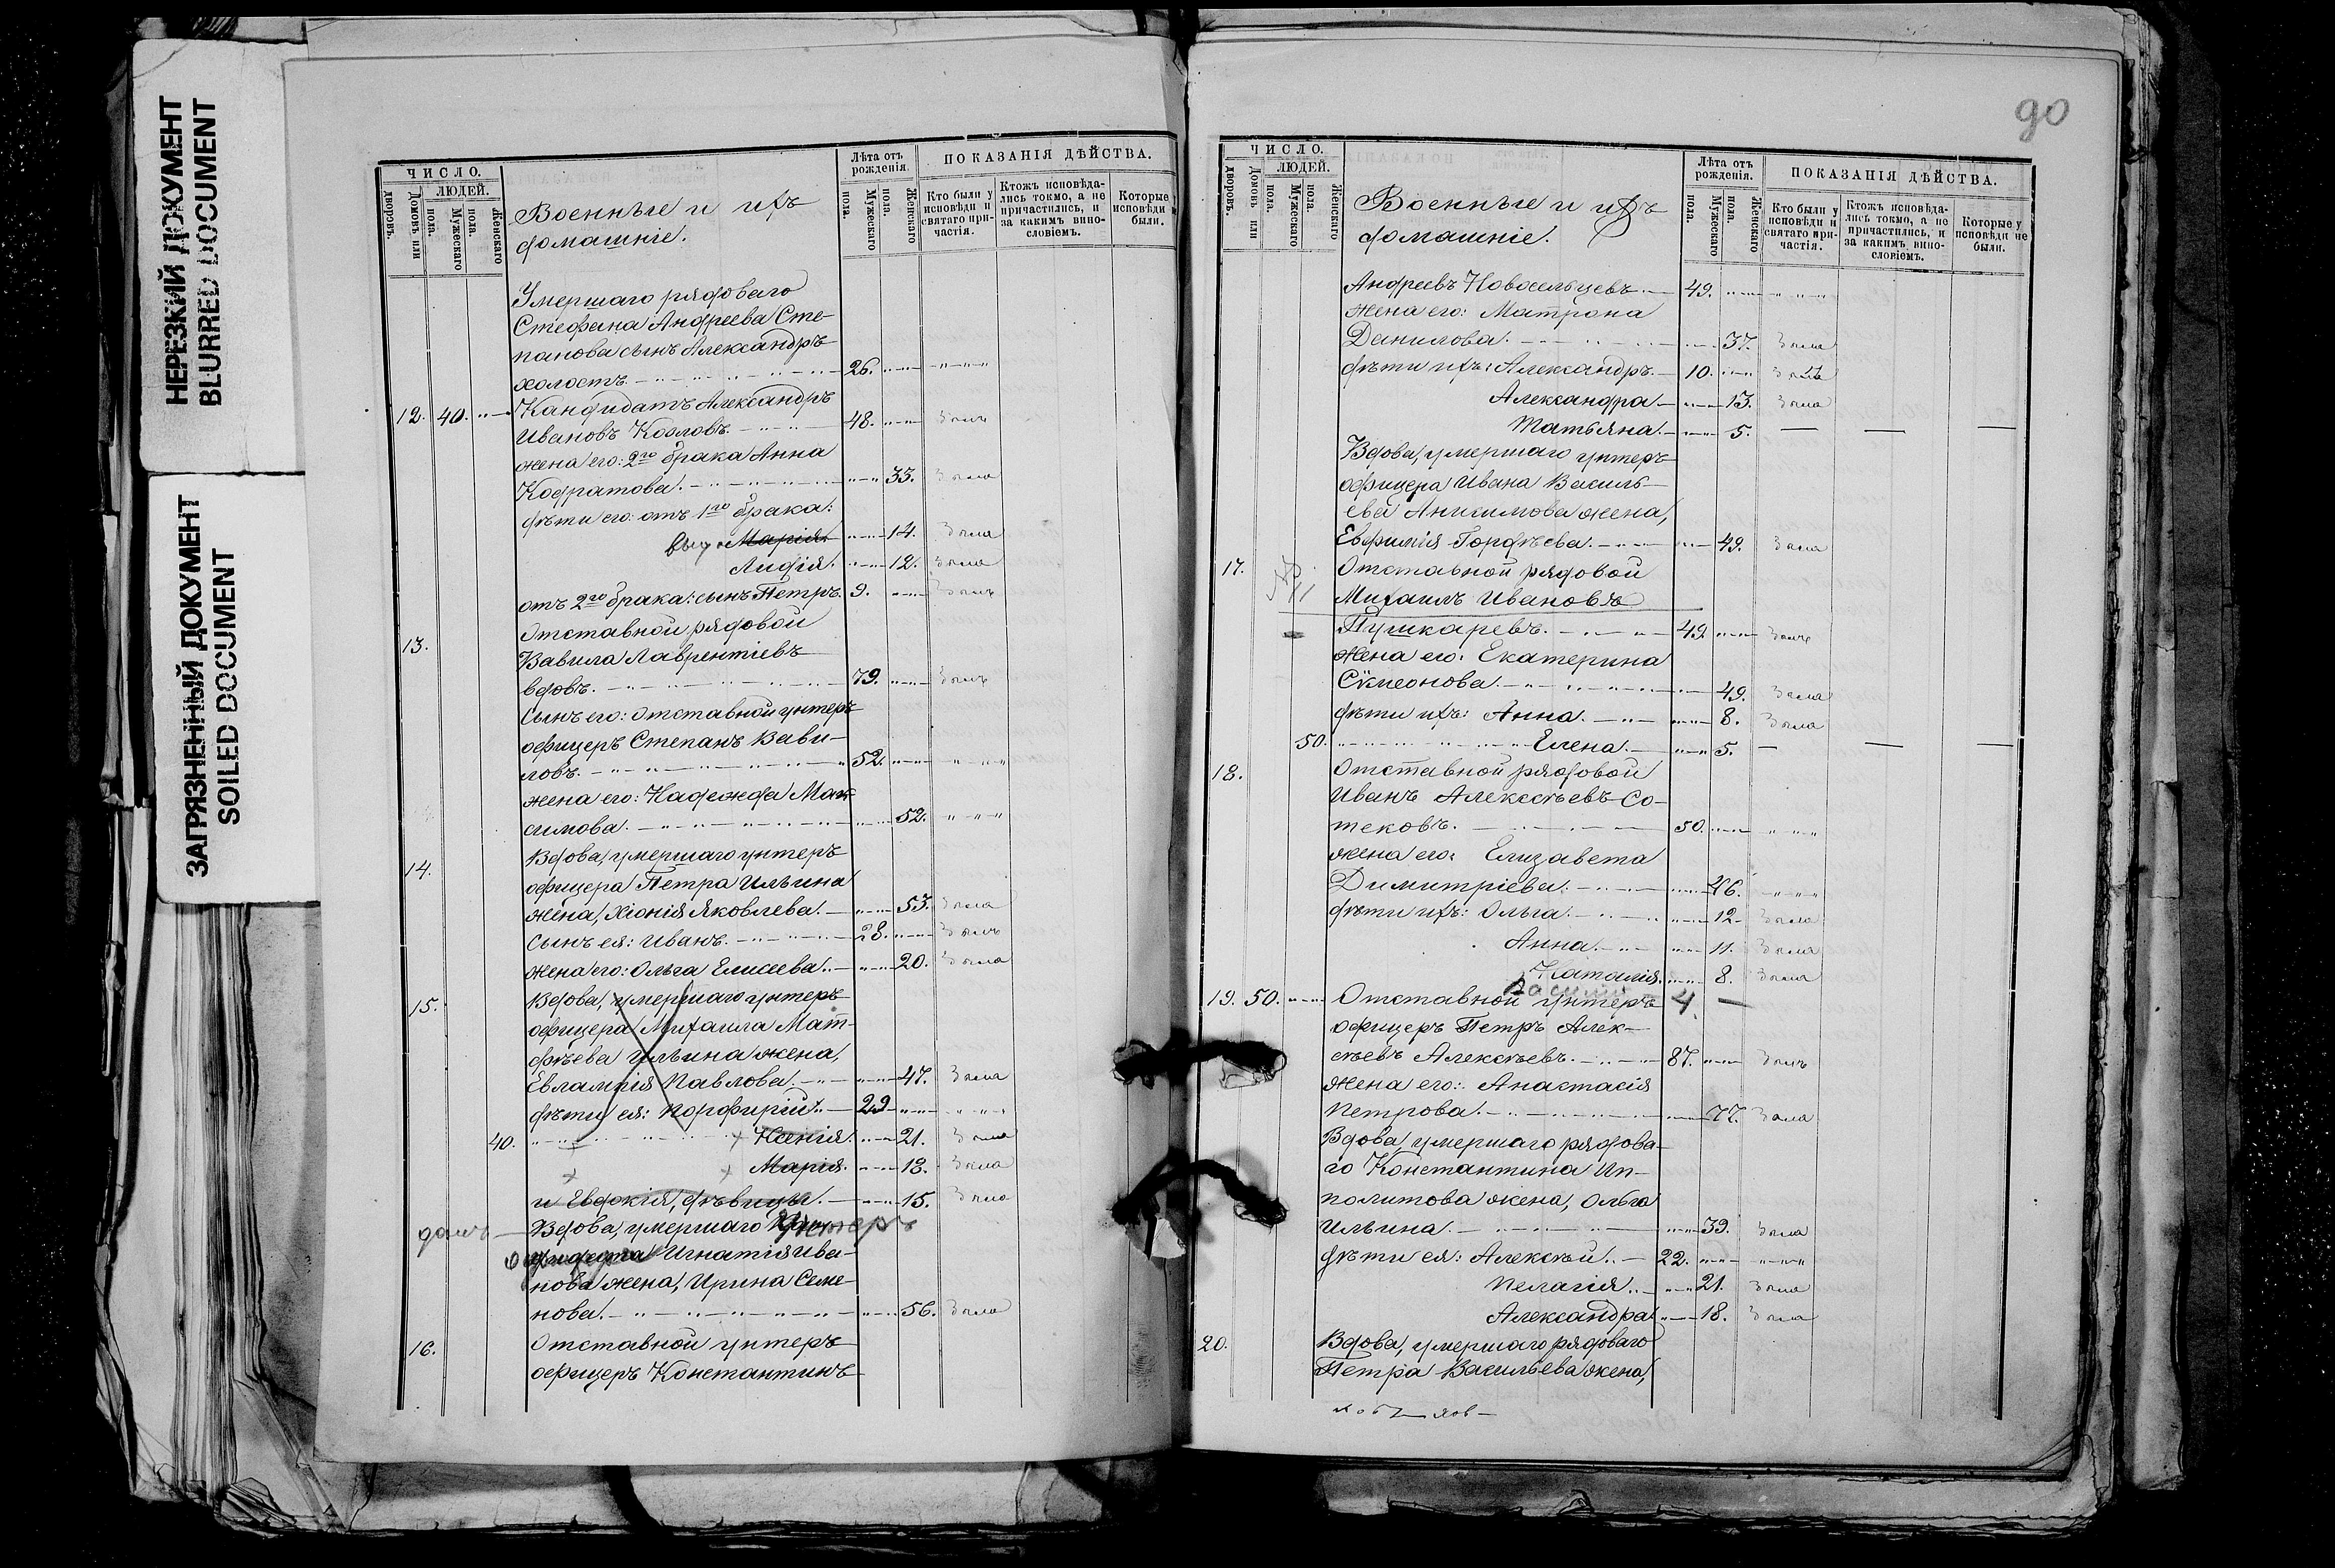 НЕРЕЗКИЙ ДОКУМЕНТ
BLURRED DOCUMENT
ЗАГРЯЗНЕННЫЙ ДОКУМЕНТ
SOILED DOCUMENT
ЧИСЛО.
ЛЮДЕЙ.
Домовъ или дворовъ.
Мужескаго пола.
Женскаго пола.
Военные и ихъ
домашніе.
Лѣта отъ рожденія.
Мужескаго пола.
Женскаго пола.
ПОКАЗАНІЯ ДѢЙСТВА.
Кто были у исповѣди и святаго причастія.
Ктожъ исповѣдались токмо, а не причастились, и за какимъ винословіемъ.
Которые исповѣди были.
Умершаго рядоваго
Стефана Андреева Сте-
панова сынъ Александръ
холостъ. 26.
12. 40. Кандидатъ Александръ
Ивановъ Козловъ. 48. былъ
жена его: 2го брака Анна
Кодратова. 33. была
дѣти его: отъ 1го брака:
выш. Марія 14. была
Лидія. 12. была
отъ 2го брака: сынъ Петръ. 9. былъ
13. Отставной рядовой
Вавила Лаврентіевъ
вдовъ. 79. былъ
сынъ его: отставной унтеръ
офицеръ Степанъ Вави-
ловъ. 52.
жена его: Надежда Мак-
симова. 52.
14. Вдова, умершаго унтеръ
офицера Петра Ильина
жена, Хіонія Яковлева. 53. была
сынъ ея: Иванъ. 28. былъ
жена его: Ольга Елисеева. 20. была
15. Вдова, умершаго унтеръ
офицера Михаила Мат-
фѣева Ульина жена,
Евлампія Павлова. 47. была
дѣти ея: Порфирій. 29
40. Ксенія. 21. была
Марія. 18. была
и Евдокія, дѣвицы. 15. была
Вдова, умершаго Унтеръ
Игнатія Ива-
нова жена, Ирина Семе-
нова. 56. была
16. Отставной унтеръ
офицеръ Константинъ
90
ЧИСЛО.
ЛЮДЕЙ.
Домовъ или дворовъ.
Мужескаго пола.
Женскаго пола.
Военные и ихъ
домашніе.
Лѣта отъ рожденія.
Мужескаго пола.
Женскаго пола.
ПОКАЗАНІЯ ДѢЙСТВА.
Кто были у исповѣди и святаго причастія.
Ктожъ исповѣдались токмо, а не причастились, и за какимъ винословіемъ.
Которые у исповѣди не были.
Андреевъ Новосельцевъ. 49.
жена его: Матрона
Данилова. 37. была
дѣти ихъ: Александръ. 10. былъ
Александра 13. была
Татьяна. 5. — — —
Вдова, умершаго унтеръ
офицера Ивана Василь-
ева Анисимова жена,
Евфимія Гордѣева. 49. была
17. Отставной рядовой
Михаилъ Ивановъ
Пушкаревъ. 49. былъ
жена его: Екатерина
Сѵмеонова. 49. была
дѣти ихъ: Анна. 8. была
50. Елена. 5. — — —
18. Отставной рядовой
Иванъ Алексѣевъ Со-
тековъ. 50.
жена его: Елизавета
Димитріева. 46.
дѣти ихъ: Ольга. 12. была
Анна. 11. была
Наталія. 8. была
19. 50. Отставной унтеръ 4. —
офицеръ Петръ Алек-
сѣевъ Алексѣевъ. 87. былъ
жена его: Анастасія
Петрова. 77. была
Вдова умершаго рядова-
го Константина Ип-
политова жена, Ольга
Ильина. 39. была
дѣти ея: Алексѣй. 22.
Пелагія. 21. была
Александра 18. была
20. Вдова, умершаго рядоваго
Петра Васильева жена,